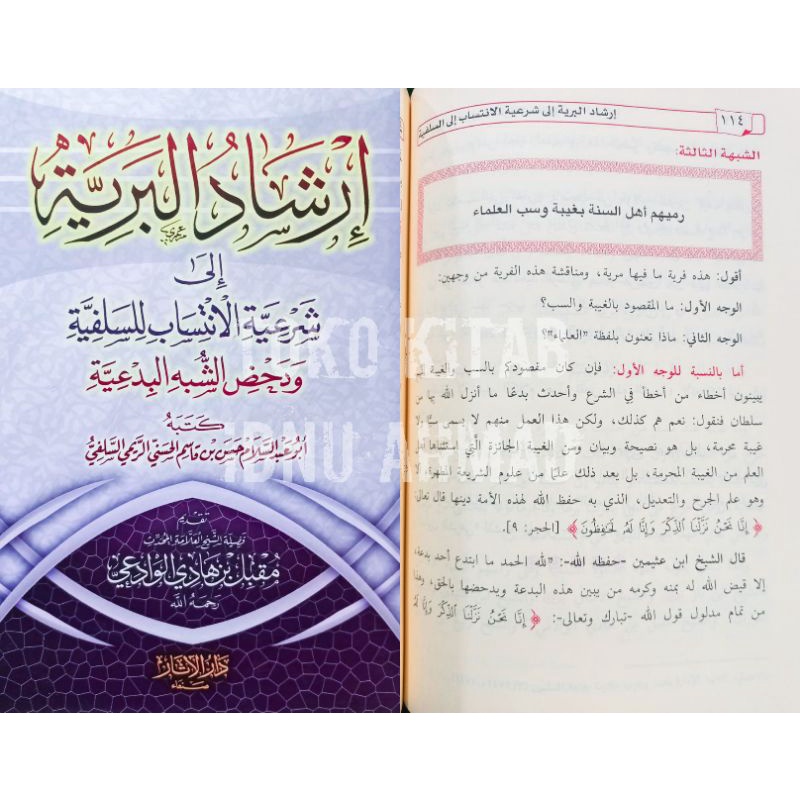 إِرْشَادُ البَرِيَّةِ
إِلَى
شَرْعِيَّةِ الِانْتِسَابِ لِلسَّلَفِيَّةِ
وَدَحْضِ الشُّبَهِ البِدْعِيَّةِ
كَتَبَهُ
أبو عبد السلام حسن بن قاسم الحسني الريمي السلفي
تقديم
فضيلة الشيخ العلامة المحدث
مقبل بن هادي الوادعي
رحمه الله
دار الآثار
صنعاء
١١٤
إرشاد البرية إلى شرعية الانتساب إلى السلفية
الشبهة الثالثة:
رميهم أهل السنة بغيبة وسب العلماء
أقول: هذه فرية ما فيها مرية، ومناقشة هذه الفرية من وجهين:
الوجه الأول: ما المقصود بالغيبة والسب؟
الوجه الثاني: ماذا تعنون بلفظة «العلماء»؟
أما بالنسبة للوجه الأول: فإن كان مقصودكم بالسب والغيبة
يبينون أخطاء من أخطأ في الشرع وأحدث بدعًا ما أنزل الله بها من
سلطان فنقول: نعم هم كذلك، ولكن هذا العمل منهم لا يسمى سبًّا ولا
غيبة محرمة، بل هو نصيحة وبيان ومن الغيبة الجائزة التي استثناها أهل
العلم من الغيبة المحرمة، بل يعد ذلك علمًا من علوم الشريعة المطهرة، ألا
وهو علم الجرح والتعديل، الذي به حفظ الله لهذه الأمة دينها قال تعالى:
﴿إِنَّا نَحْنُ نَزَّلْنَا الذِّكْرَ وَإِنَّا لَهُ لَحَافِظُونَ﴾ [الحجر: ٩].
قال الشيخ ابن عثيمين -حفظه الله-: "لله الحمد ما ابتدع أحد بدعة،
إلا قيض الله له بمنه وكرمه من يبين هذه البدعة ويدحضها بالحق، وهذا
من تمام مدلول قول الله -تبارك وتعالى-: ﴿إِنَّا نَحْنُ نَزَّلْنَا الذِّكْرَ وَإِنَّا لَهُ
TOKO KITAB
IBNU AHMAD